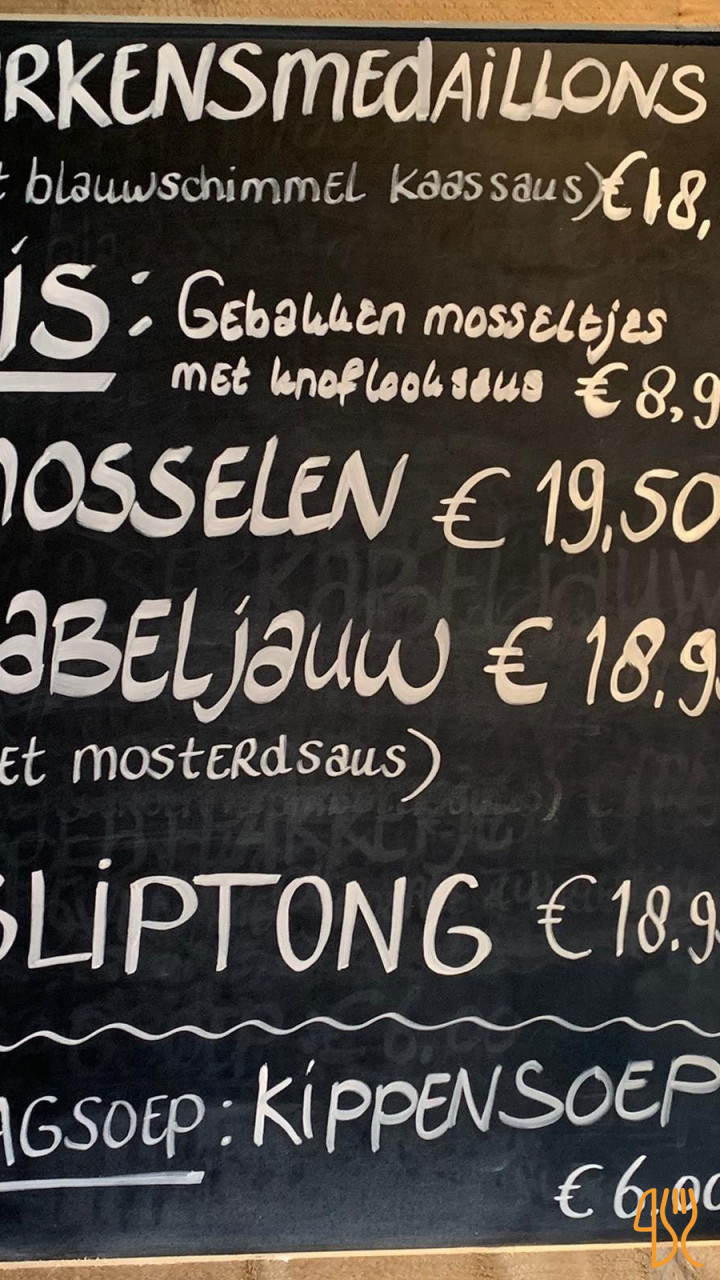 RKENSMEDAILLONS
t blauwschimmel kaassaus) €18,
is: Gebakken mosseltjes
met knoflooksaus €8,9
MOSSELEN €19,50
ABELJAUW €18.9
et mosterdsaus)
SLIPTONG €18.9
AGSOEP: KIPPENSOEP
€6.00